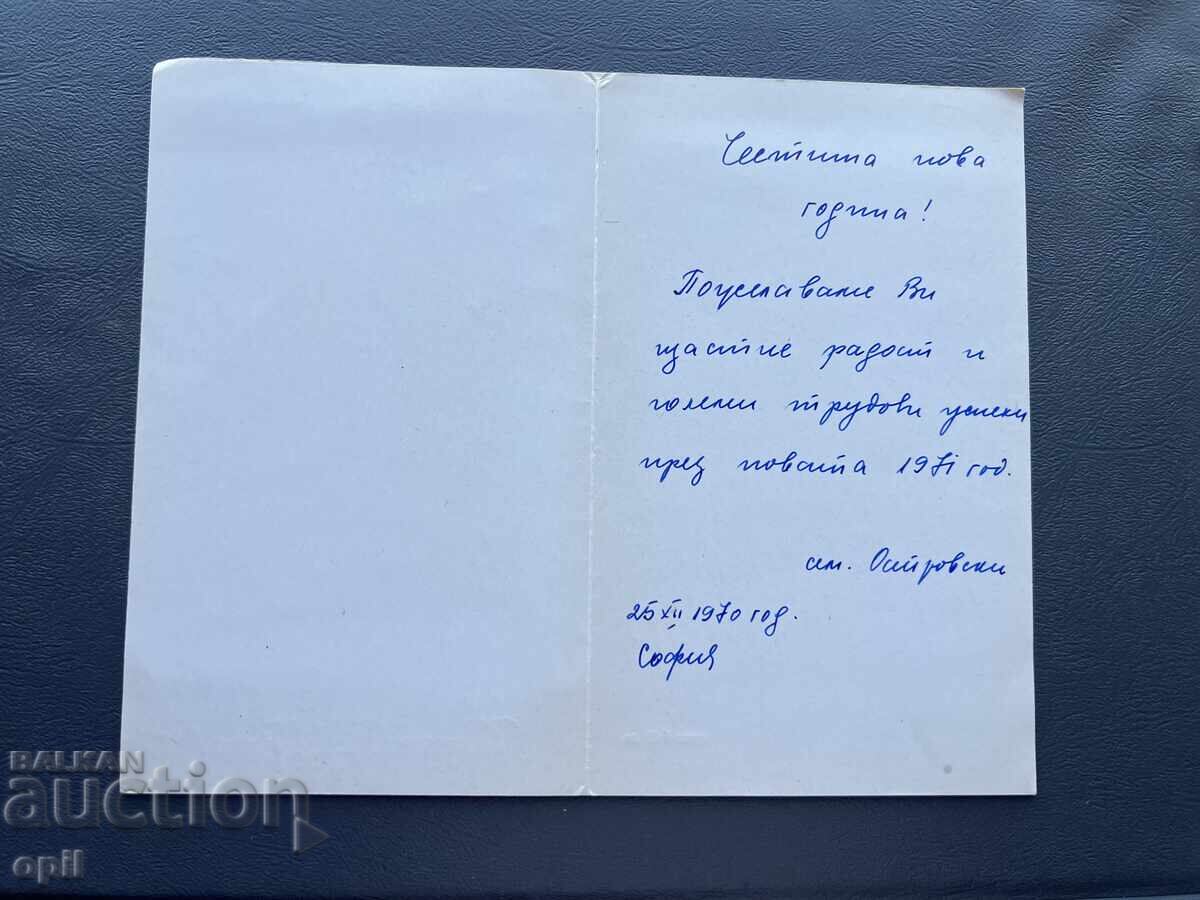 Честита нова
година!
Пожелаваме Ви
щастие радост и
големи трудови успехи
през новата 1971 год.
сем. Островски
25 XII 1970 год.
София
BALKAN
auction
opil